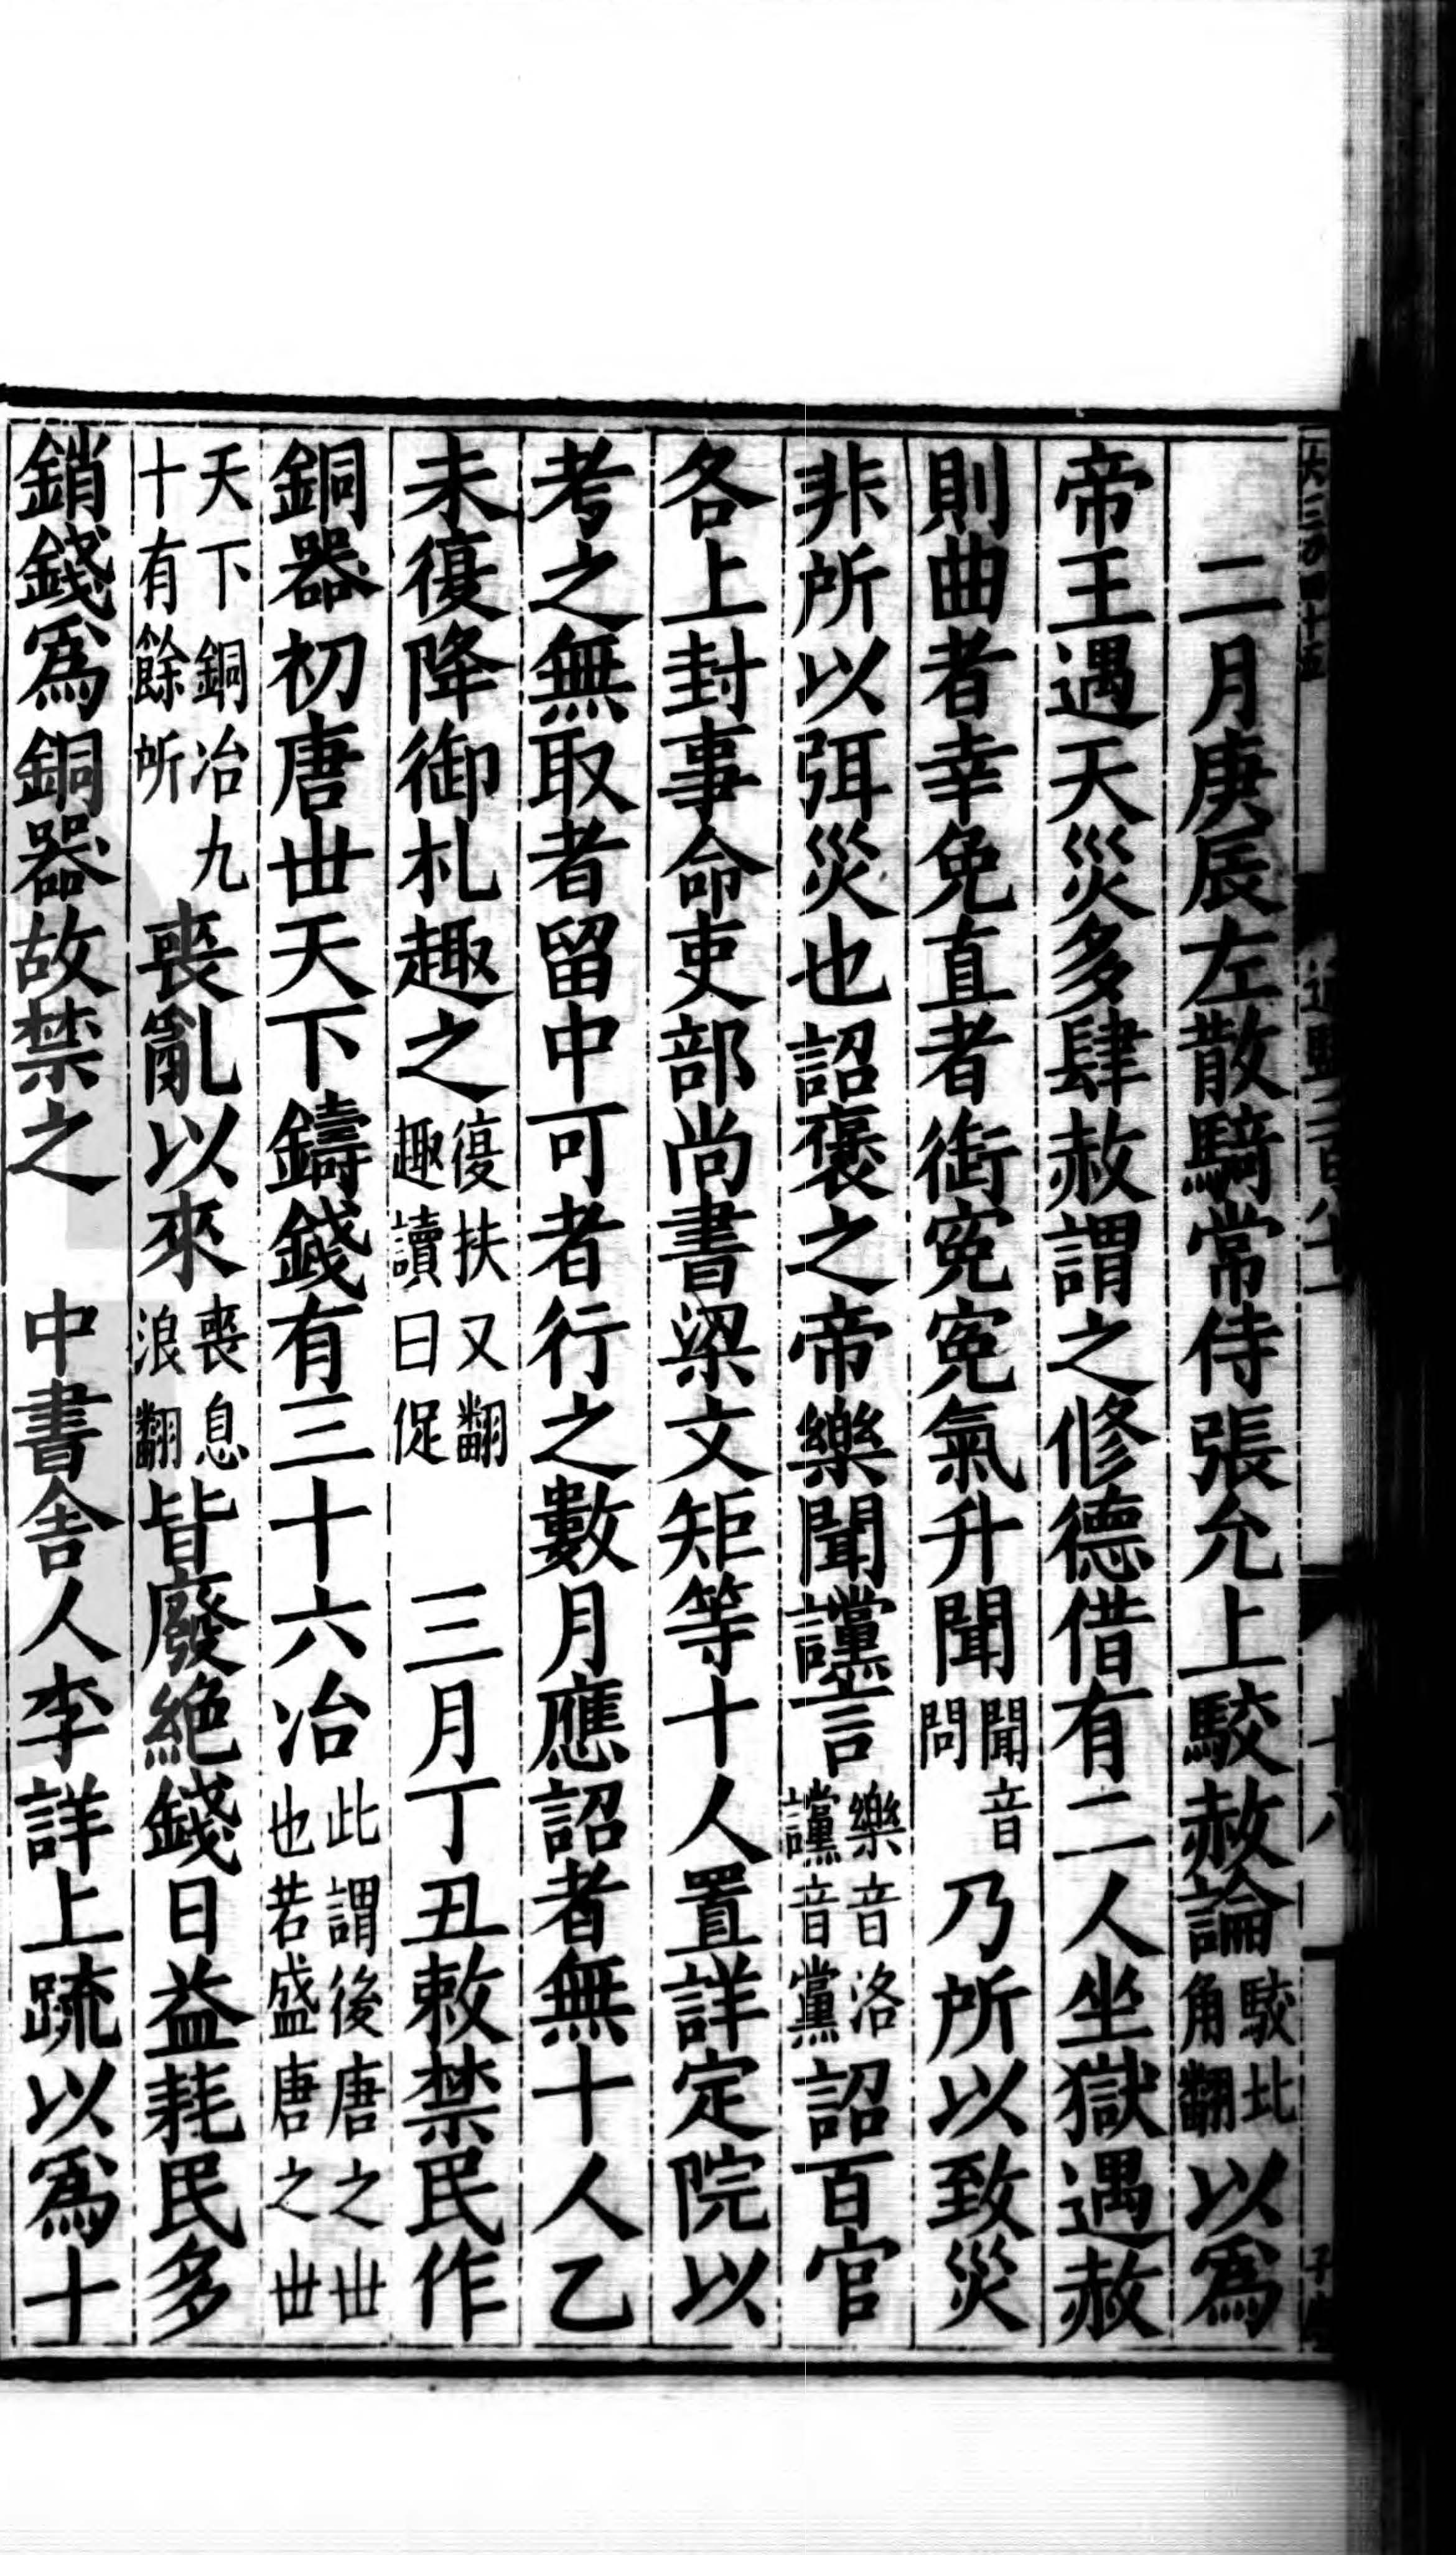 二月庚辰左散騎常侍張允上駮赦論駮北角翻以爲
帝王遇天災多肆赦謂之修德借有二人坐獄遇赦
則曲者幸免直者銜寃寃氣升聞聞音問乃所以致災
非所以弭災也詔褒之帝樂聞讜言樂音洛讜音黨詔百官
各上封事命吏部尚書梁文矩等十人置詳定院以
考之無取者留中可者行之數月應詔者無十人乙
未復降御札趣之復扶又翻趣讀曰促　三月丁丑敕禁民作
銅器初唐丗天下鑄錢有三十六冶此謂後唐之丗也若盛唐之丗
天下銅冶九十有餘所喪亂以來喪息浪翻皆廢絶錢日益耗民多
銷錢爲銅器故禁之　中書舍人李詳上疏以爲十